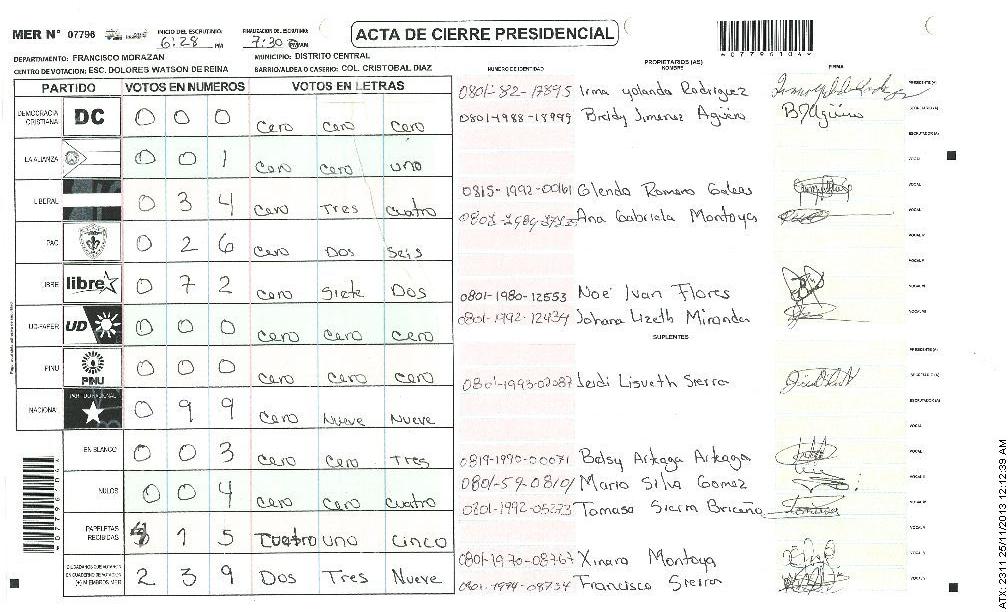 MER N° 07796 INICIO DEL ESCRUTINIO: 6:28 PM FINALIZACION DEL ESCRUTINIO: 7:30 PM ACTA DE CIERRE PRESIDENCIAL *07796104*
DEPARTAMENTO: FRANCISCO MORAZAN MUNICIPIO: DISTRITO CENTRAL
CENTRO DE VOTACION: ESC. DOLORES WATSON DE REINA BARRIO/ALDEA O CASERIO: COL. CRISTOBAL DIAZ
NUMERO DE IDENTIDAD PROPIETARIOS (AS) NOMBRE FIRMA
PARTIDO VOTOS EN NUMEROS VOTOS EN LETRAS
0801-82-17895 Irma Yolanda Rodriguez PRESIDENTE (A)
DEMOCRACIA CRISTIANA DC 0 0 0 cero cero cero
0801-1988-18999 Breidy Jimenez Agüero B/Agüero SECRETARIO (A)
ESCRUTADOR (A)
LA ALIANZA 0 0 1 cero cero uno
VOCAL
LIBERAL 0 3 4 cero Tres cuatro
0815-1992-00161 Glenda Romero Galeas VOCAL
Ana Gabriela Montoya VOCAL
PAC 0 2 6 cero Dos Seis
LIBRE libre 0 7 2 cero Siete Dos
0801-1980-12553 Noé Ivan Flores
UD-FAPER UD 0 0 0 cero cero cero
0801-1992-12434 Johana Lizeth Miranda
SUPLENTES
PRESIDENTE (A)
PINU PINU 0 0 0 cero cero cero
0801-1993-02087 Leidi Lisveth Sierra SECRETARIO (A)
NACIONAL PARTIDO NACIONAL 0 9 9 cero Nueve Nueve
ESCRUTADOR (A)
VOCAL
EN BLANCO 0 0 3 cero cero Tres
0819-1990-00071 Belsy Arteaga Arteaga
NULOS 0 0 4 cero cero cuatro
0801-59-0810/ Mario Silva Gomez
0801-1992-05273 Tomasa Sierra Briceño Tomasa
PAPELETAS RECIBIDAS 4 1 5 cuatro uno cinco
0801-1970-08767 Xinaro Montoya
CIUDADANOS QUE VOTARON EN CUADERNO DE VOTACION (+) MIEMBROS MER 2 3 9 Dos Tres Nueve
0801-1994-08734 Francisco Sierra
*07796104*
ATX: 2311 25/11/2013 12:12:39 AM